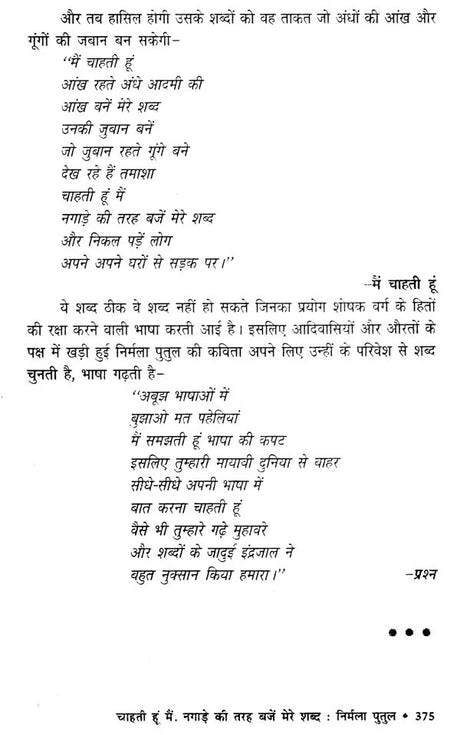 और तब हासिल होगी उसके शब्दों को वह ताकत जो अंधों की आंख और
गूंगों की जबान बन सकेगी–
"मैं चाहती हूं
आंख रहते अंधे आदमी की
आंख बनें मेरे शब्द
उनकी जुबान बनें
जो जुबान रहते गूंगे बने
देख रहे हैं तमाशा
चाहती हूं मैं
नगाड़े की तरह बजें मेरे शब्द
और निकल पड़ें लोग
अपने अपने घरों से सड़क पर।"
–मैं चाहती हूं
ये शब्द ठीक वे शब्द नहीं हो सकते जिनका प्रयोग शोषक वर्ग के हितों
की रक्षा करने वाली भाषा करती आई है। इसलिए आदिवासियों और औरतों के
पक्ष में खड़ी हुई निर्मला पुतुल की कविता अपने लिए उन्हीं के परिवेश से शब्द
चुनती है, भाषा गढ़ती है–
"अबूझ भाषाओं में
बुझाओ मत पहेलियां
मैं समझती हूं भाषा की कपट
इसलिए तुम्हारी मायावी दुनिया से बाहर
सीधे-सीधे अपनी भाषा में
बात करना चाहती हूं
वैसे भी तुम्हारे गढ़े मुहावरे
और शब्दों के जादुई इंद्रजाल ने
बहुत नुक्सान किया हमारा।"
–प्रश्न
● ● ●
चाहती हूं मैं. नगाड़े की तरह बजें मेरे शब्द : निर्मला पुतुल • 375